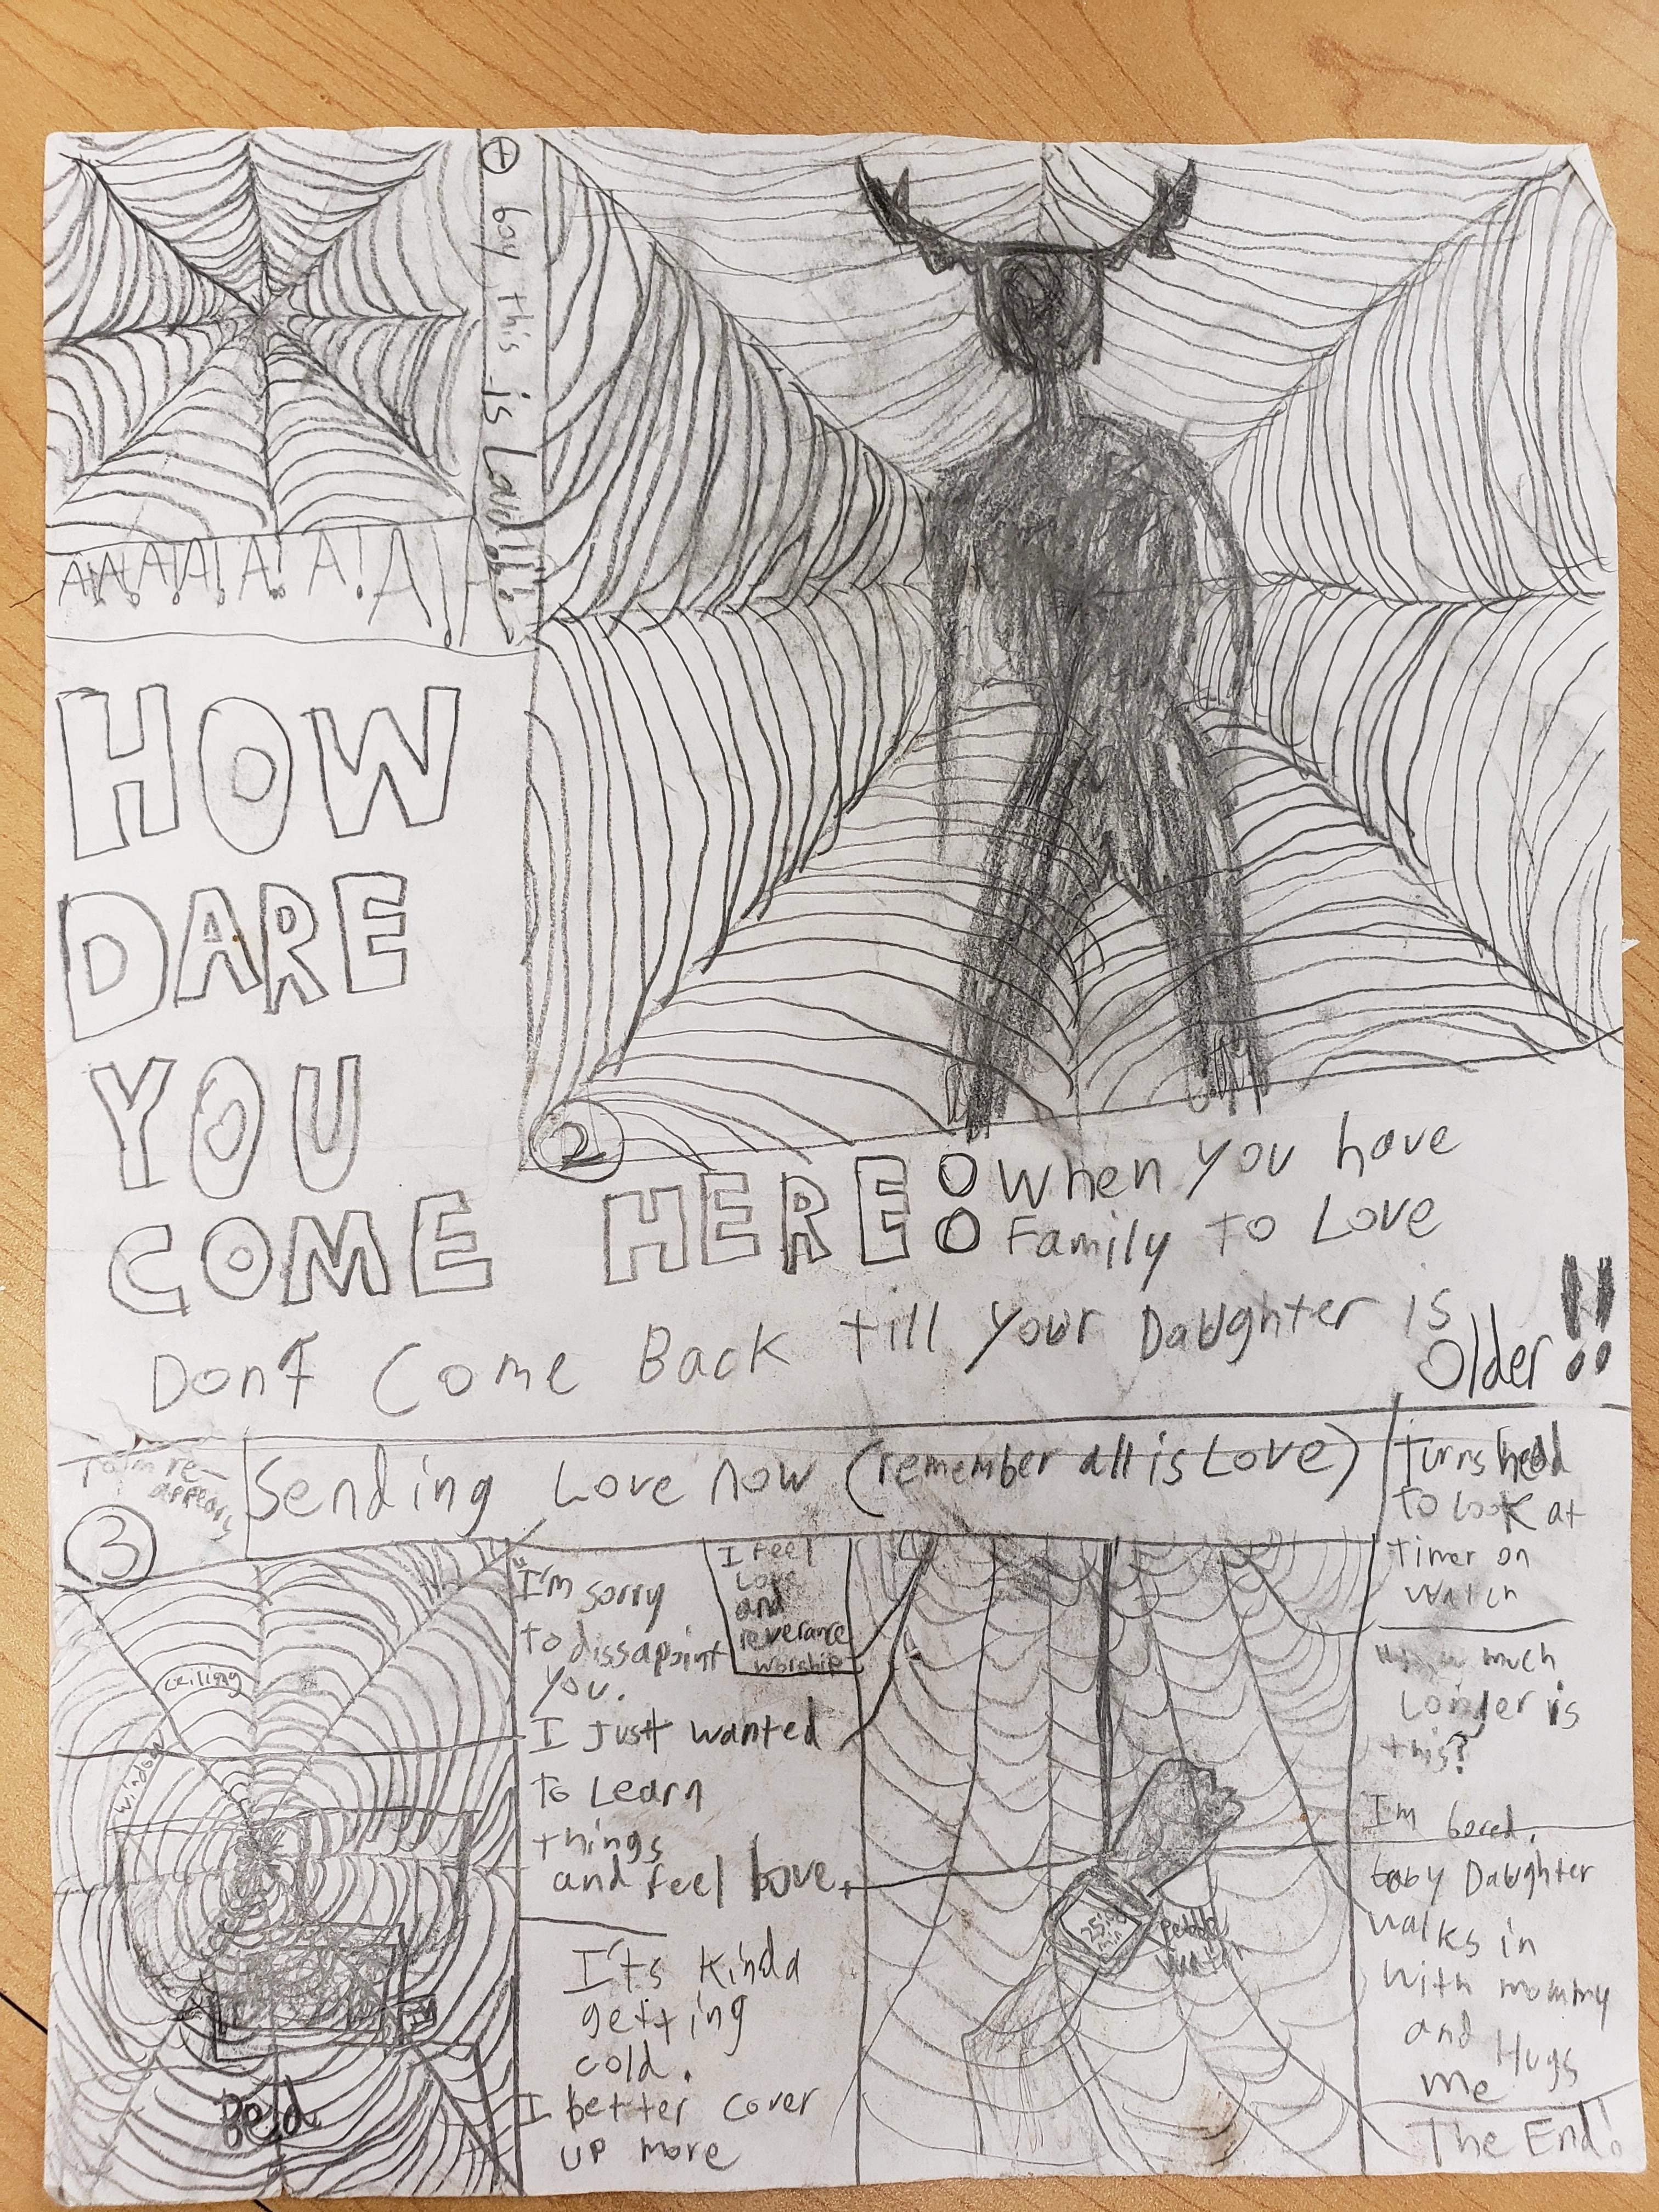 1 boy this is Loud!!!!
AAAA!A!A!A!A!A
HOW
DARE
YOU
COME HERE
2
When you have
Family to Love
Don't Come Back till your Daughter is
Older!!
re-
appears
Sending Love now (remember all is Love)
3
ceiling
window
Bed
"I'm sorry
to dissapoint
you.
I just wanted
to Learn
things
and feel love.
I feel
Love
and
reverance
worship
It's Kinda
getting
cold.
I better cover
up more
25:00
min
Pebble
Watch
Turns head
to look at
timer on
watch
much
Longer is
this?
I'm bored.
baby Daughter
walks in
with mommy
and Hugs
me
The End!